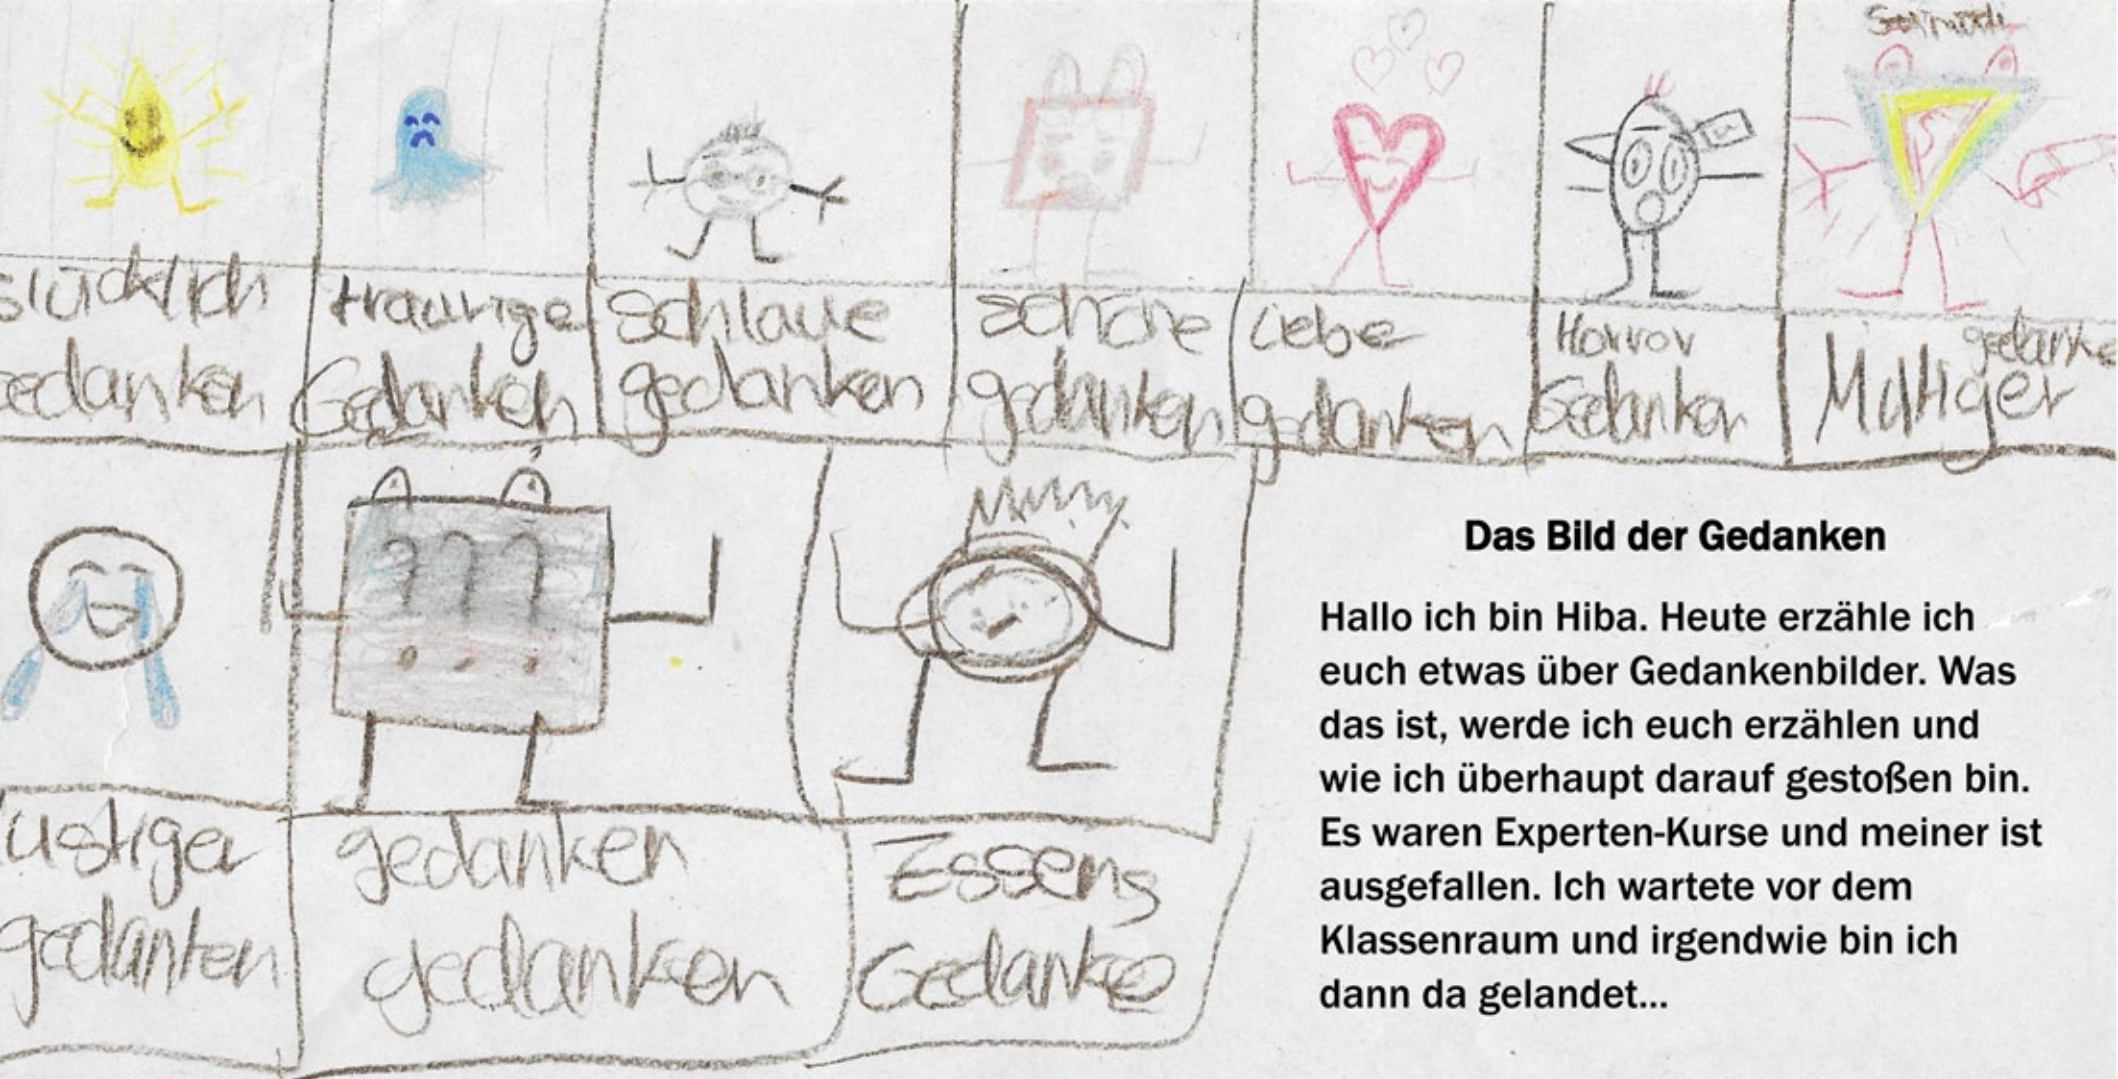 slücklich
gedanken
traurige
Gedanken
Schlaue
gedanken
schöne
gedanken
Liebe
gedanken
Horror
Gedanken
gedanke
Mutiger
lustiger
gedanken
gedanken
gedanken
Essens
Gedanke
Das Bild der Gedanken
Hallo ich bin Hiba. Heute erzähle ich
euch etwas über Gedankenbilder. Was
das ist, werde ich euch erzählen und
wie ich überhaupt darauf gestoßen bin.
Es waren Experten-Kurse und meiner ist
ausgefallen. Ich wartete vor dem
Klassenraum und irgendwie bin ich
dann da gelandet...